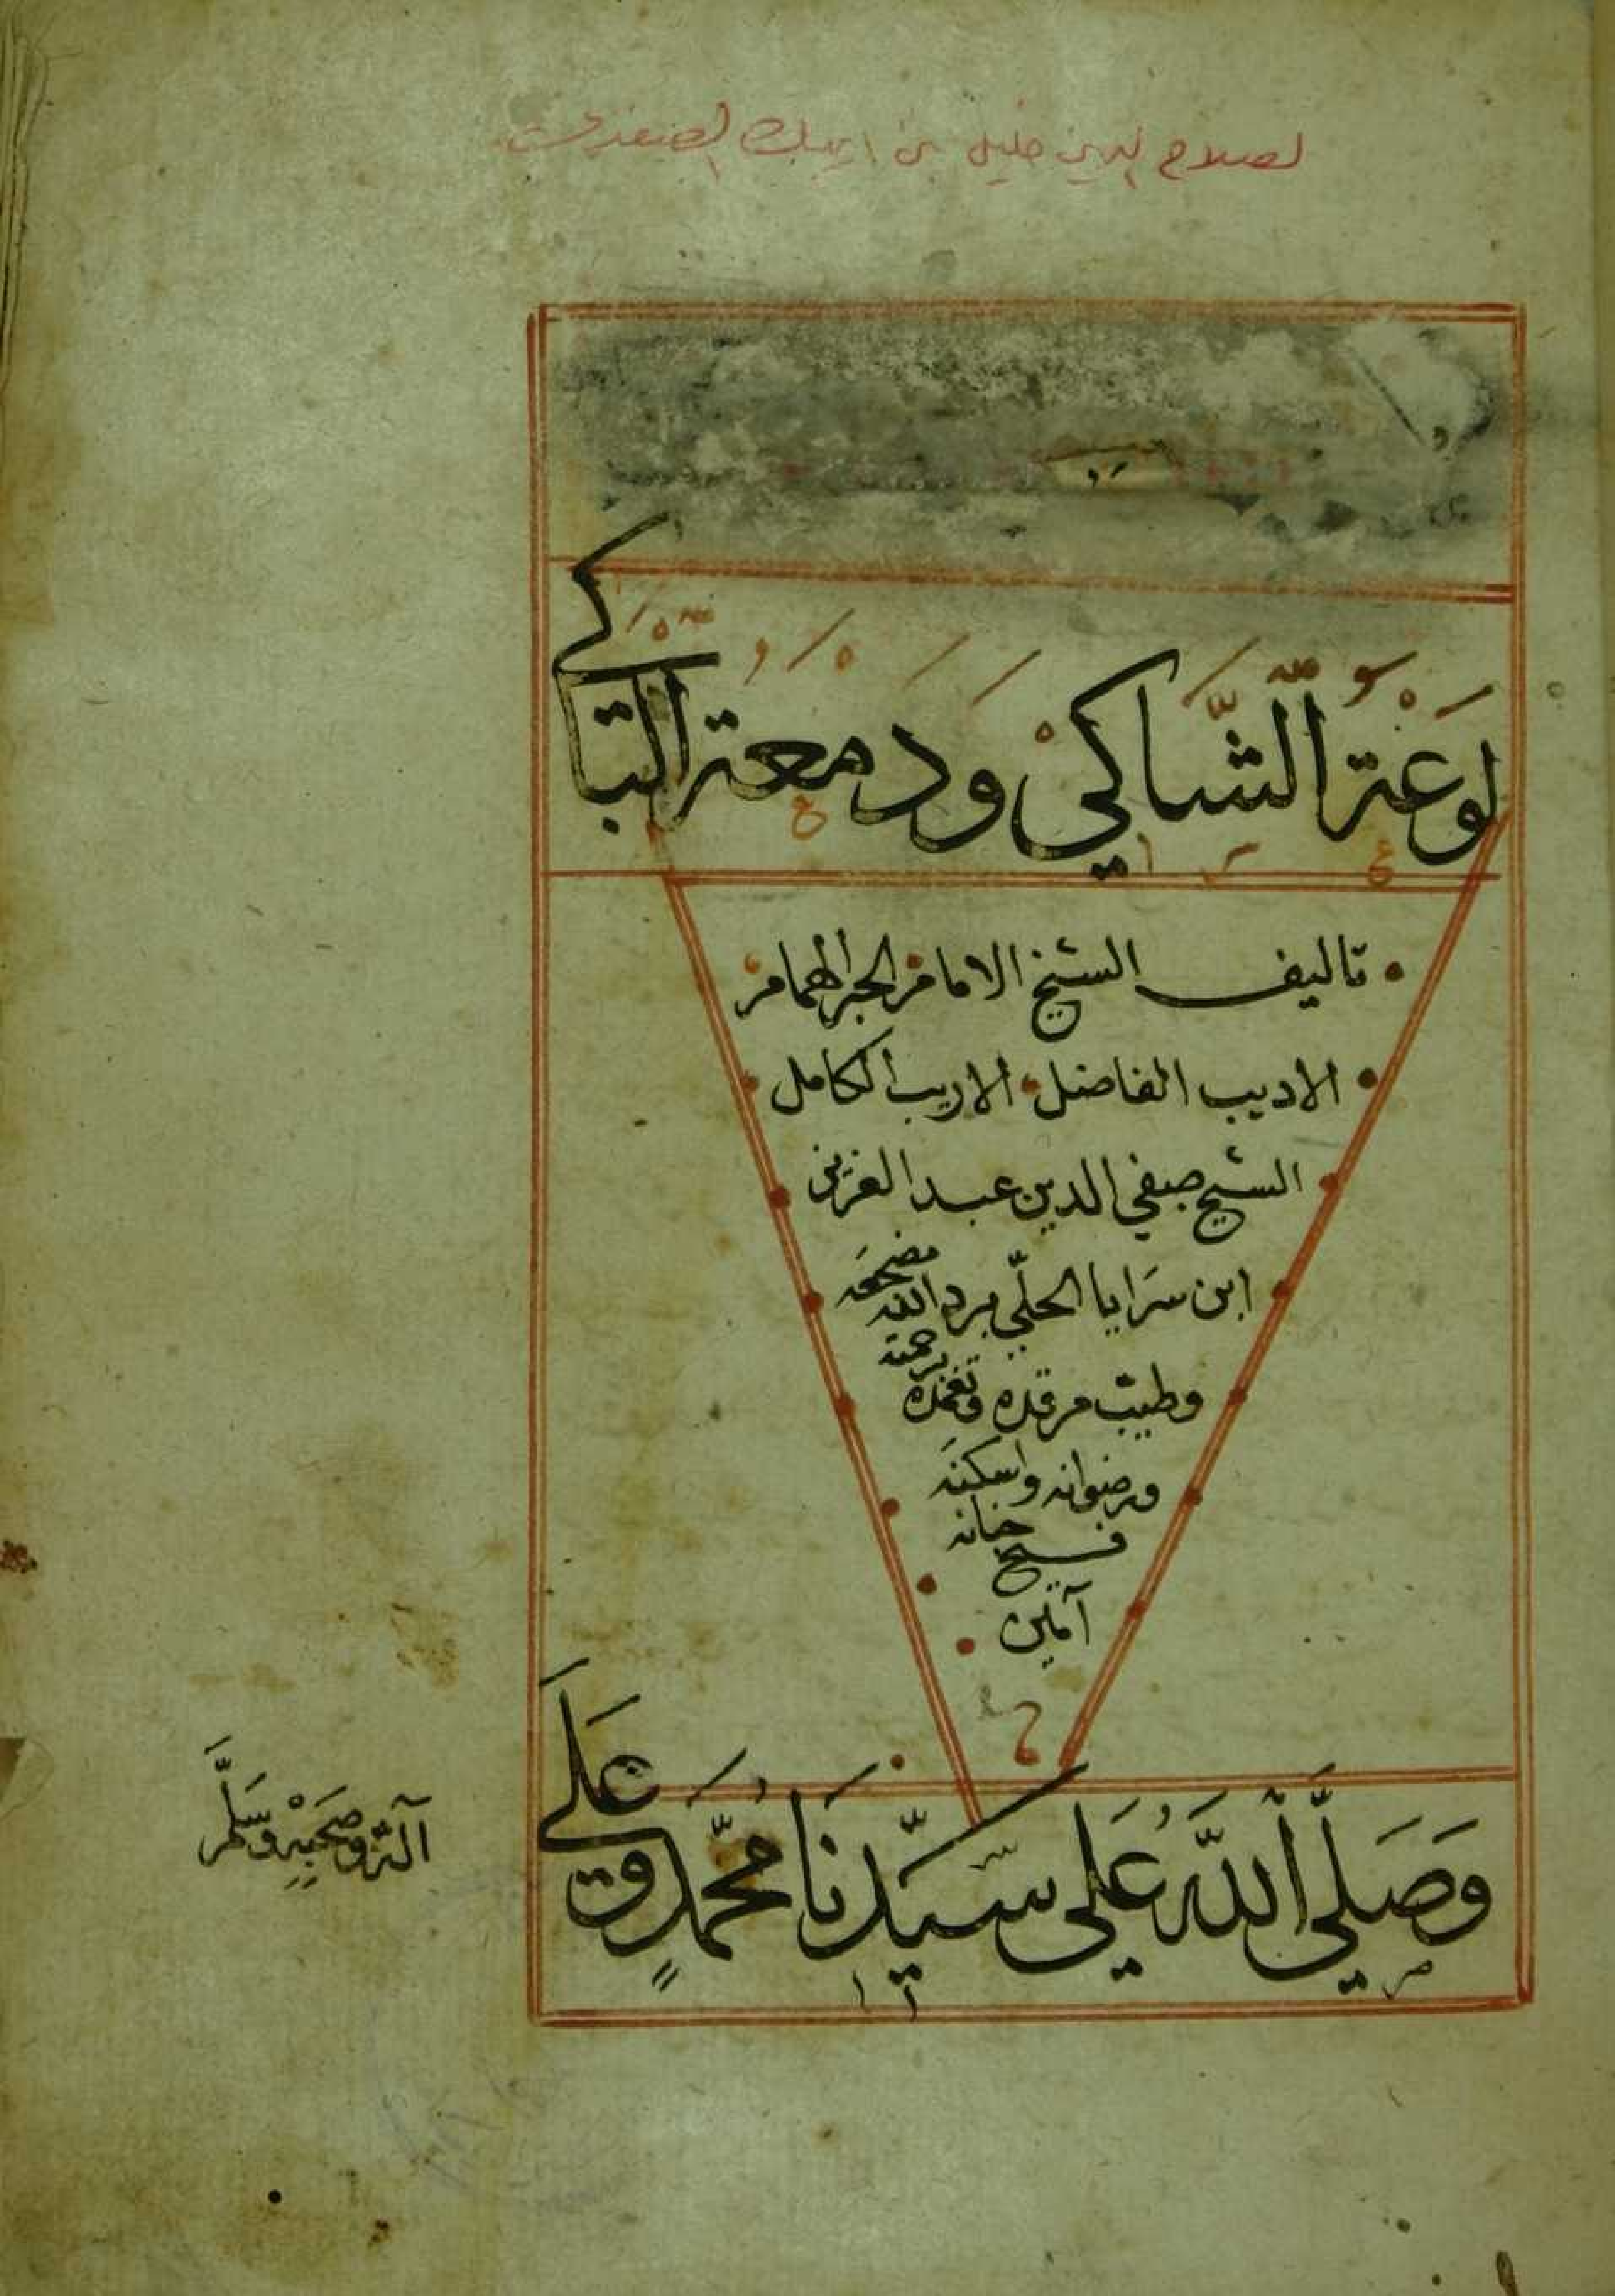 لصلاح الدين خليل بن ايبك الصفدي
لَوْعَة الشَّاكِيْ وَدَمْعَة البَّاكي
تاليف الشيخ الامام الحبر الهمام
الاديب الفاضل الاريب الكامل
الشيخ صفي الدين عبد العزيز
ابن سَرَايا الحلّي برد الله مضجعه
وطيّب مرقده وتغمده برحمته
ورضوانه واسكنَه
فسيح جنانه
آمين
وَصَلَّي اللَّهُ عَلَي سَيِّدِنَا مُحَمَّدٍ وَعَلَي
آلهِ وَصَحْبِهِ وَسَلَّم